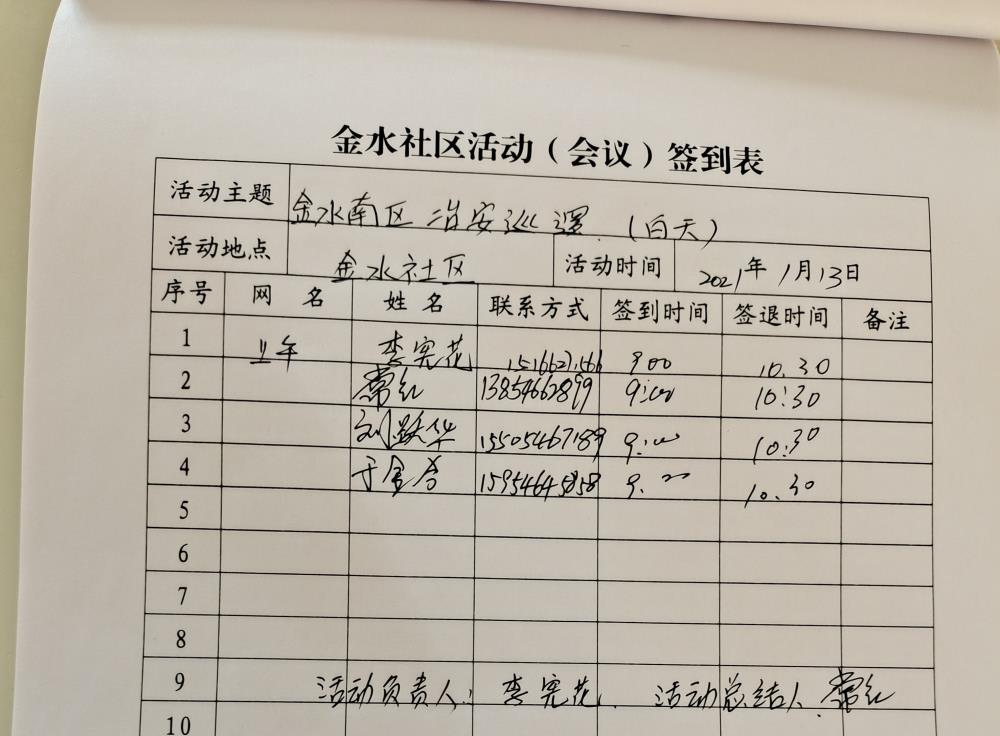 金水社区活动（会议）签到表
活动主题 金水南区治安巡逻（白天）
活动地点 金水社区 活动时间 2021年1月13日
序号 网名 姓名 联系方式 签到时间 签退时间 备注
1 上午 李宪花 15166271566 900 10.30
2 常红 13854662899 9:00 10:30
3 刘跃华 15505467189 9:00 10:30
4 于金香 15954645858 9.00 10.30
5
6
7
8
9 活动负责人: 李宪花 活动总结人 常红
10